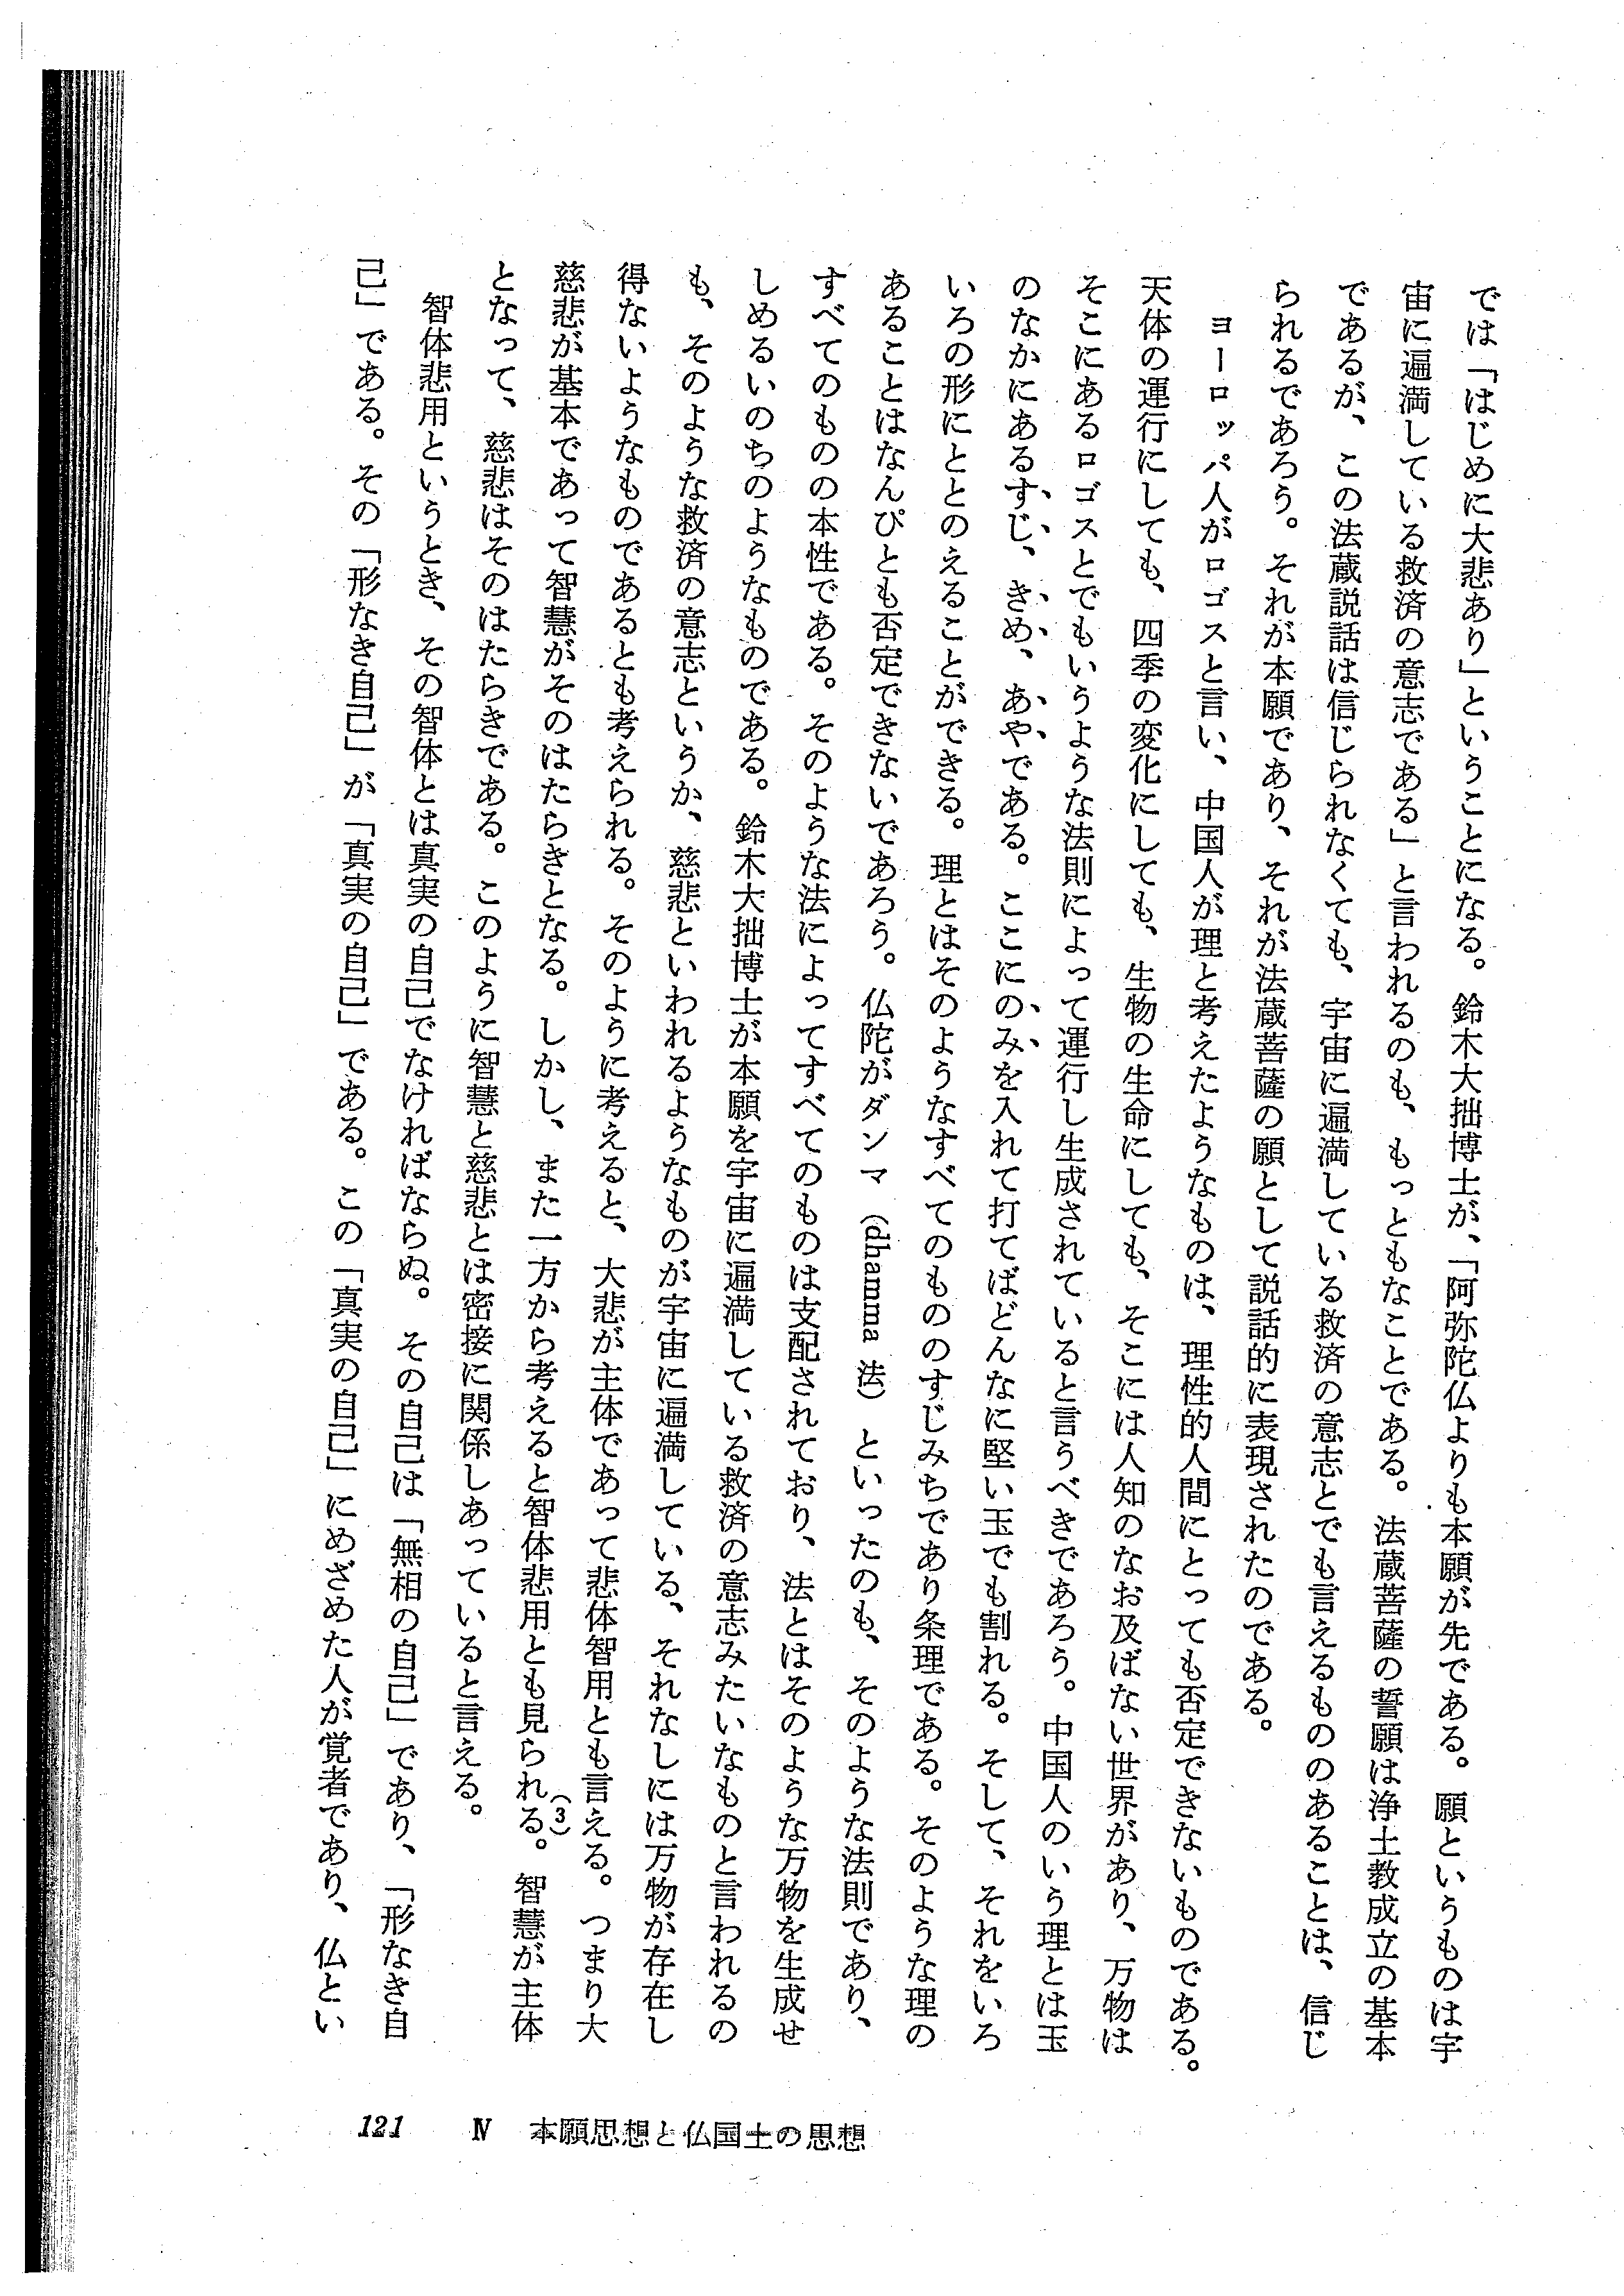 では「はじめに大悲あり」ということになる。鈴木大拙博士が、「阿弥陀仏よりも本願が先である。願というものは宇
宙に遍満している救済の意志である」と言われるのも、もっともなことである。法蔵菩薩の誓願は浄土教成立の基本
であるが、この法蔵説話は信じられなくても、宇宙に遍満している救済の意志とでも言えるもののあることは、信じ
られるであろう。それが本願であり、それが法蔵菩薩の願として説話的に表現されたのである。
ヨーロッパ人がロゴスと言い、中国人が理と考えたようなものは、理性的人間にとっても否定できないものである。
天体の運行にしても、四季の変化にしても、生物の生命にしても、そこには人知のなお及ばない世界があり、万物は
そこにあるロゴスとでもいうような法則によって運行し生成されていると言うべきであろう。中国人のいう理とは玉
のなかにあるすじ、きめ、あやである。ここにのみを入れて打てばどんなに堅い玉でも割れる。そして、それをいろ
いろの形にととのえることができる。理とはそのようなすべてのもののすじみちであり条理である。そのような理の
あることはなんぴとも否定できないであろう。仏陀がダンマ（dhamma 法）といったのも、そのような法則であり、
すべてのものの本性である。そのような法によってすべてのものは支配されており、法とはそのような万物を生成せ
しめるいのちのようなものである。鈴木大拙博士が本願を宇宙に遍満している救済の意志みたいなものと言われるの
も、そのような救済の意志というか、慈悲といわれるようなものが宇宙に遍満している、それなしには万物が存在し
得ないようなものであるとも考えられる。そのように考えると、大悲が主体であって悲体智用とも言える。つまり大
慈悲が基本であって智慧がそのはたらきとなる。しかし、また一方から考えると智体悲用とも見られる。(3)智慧が主体
となって、慈悲はそのはたらきである。このように智慧と慈悲とは密接に関係しあっていると言える。
智体悲用というとき、その智体とは真実の自己でなければならぬ。その自己は「無相の自己」であり、「形なき自
己」である。その「形なき自己」が「真実の自己」である。この「真実の自己」にめざめた人が覚者であり、仏とい
121 Ⅳ 本願思想と仏国土の思想